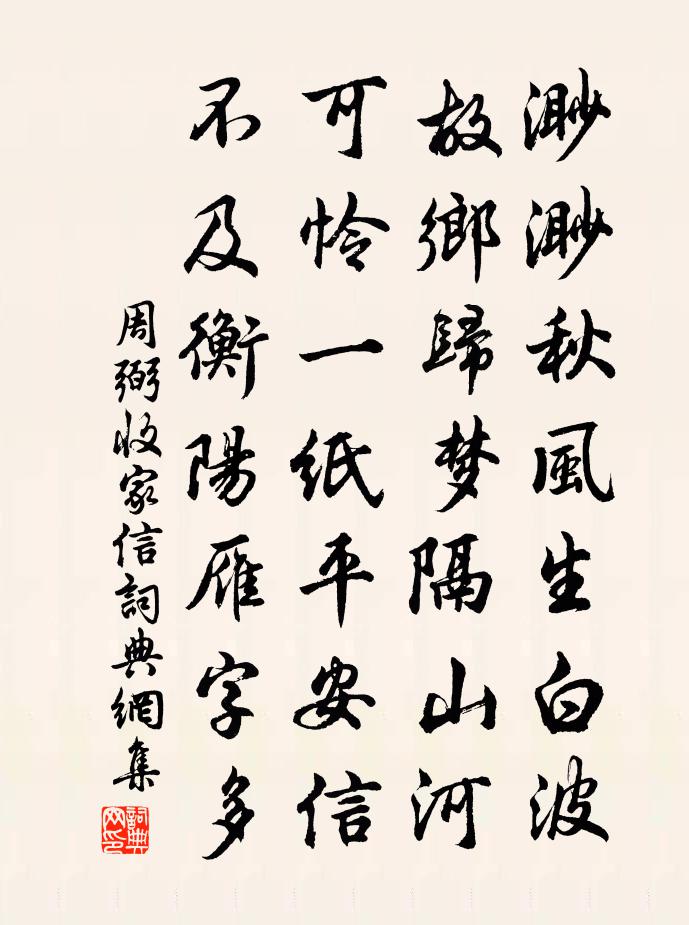 渺渺秋風生白波
故鄉歸梦隔山河
可怜一纸平安信
不及衡陽雁字多
周弼收家信詞典網集
詞典网印